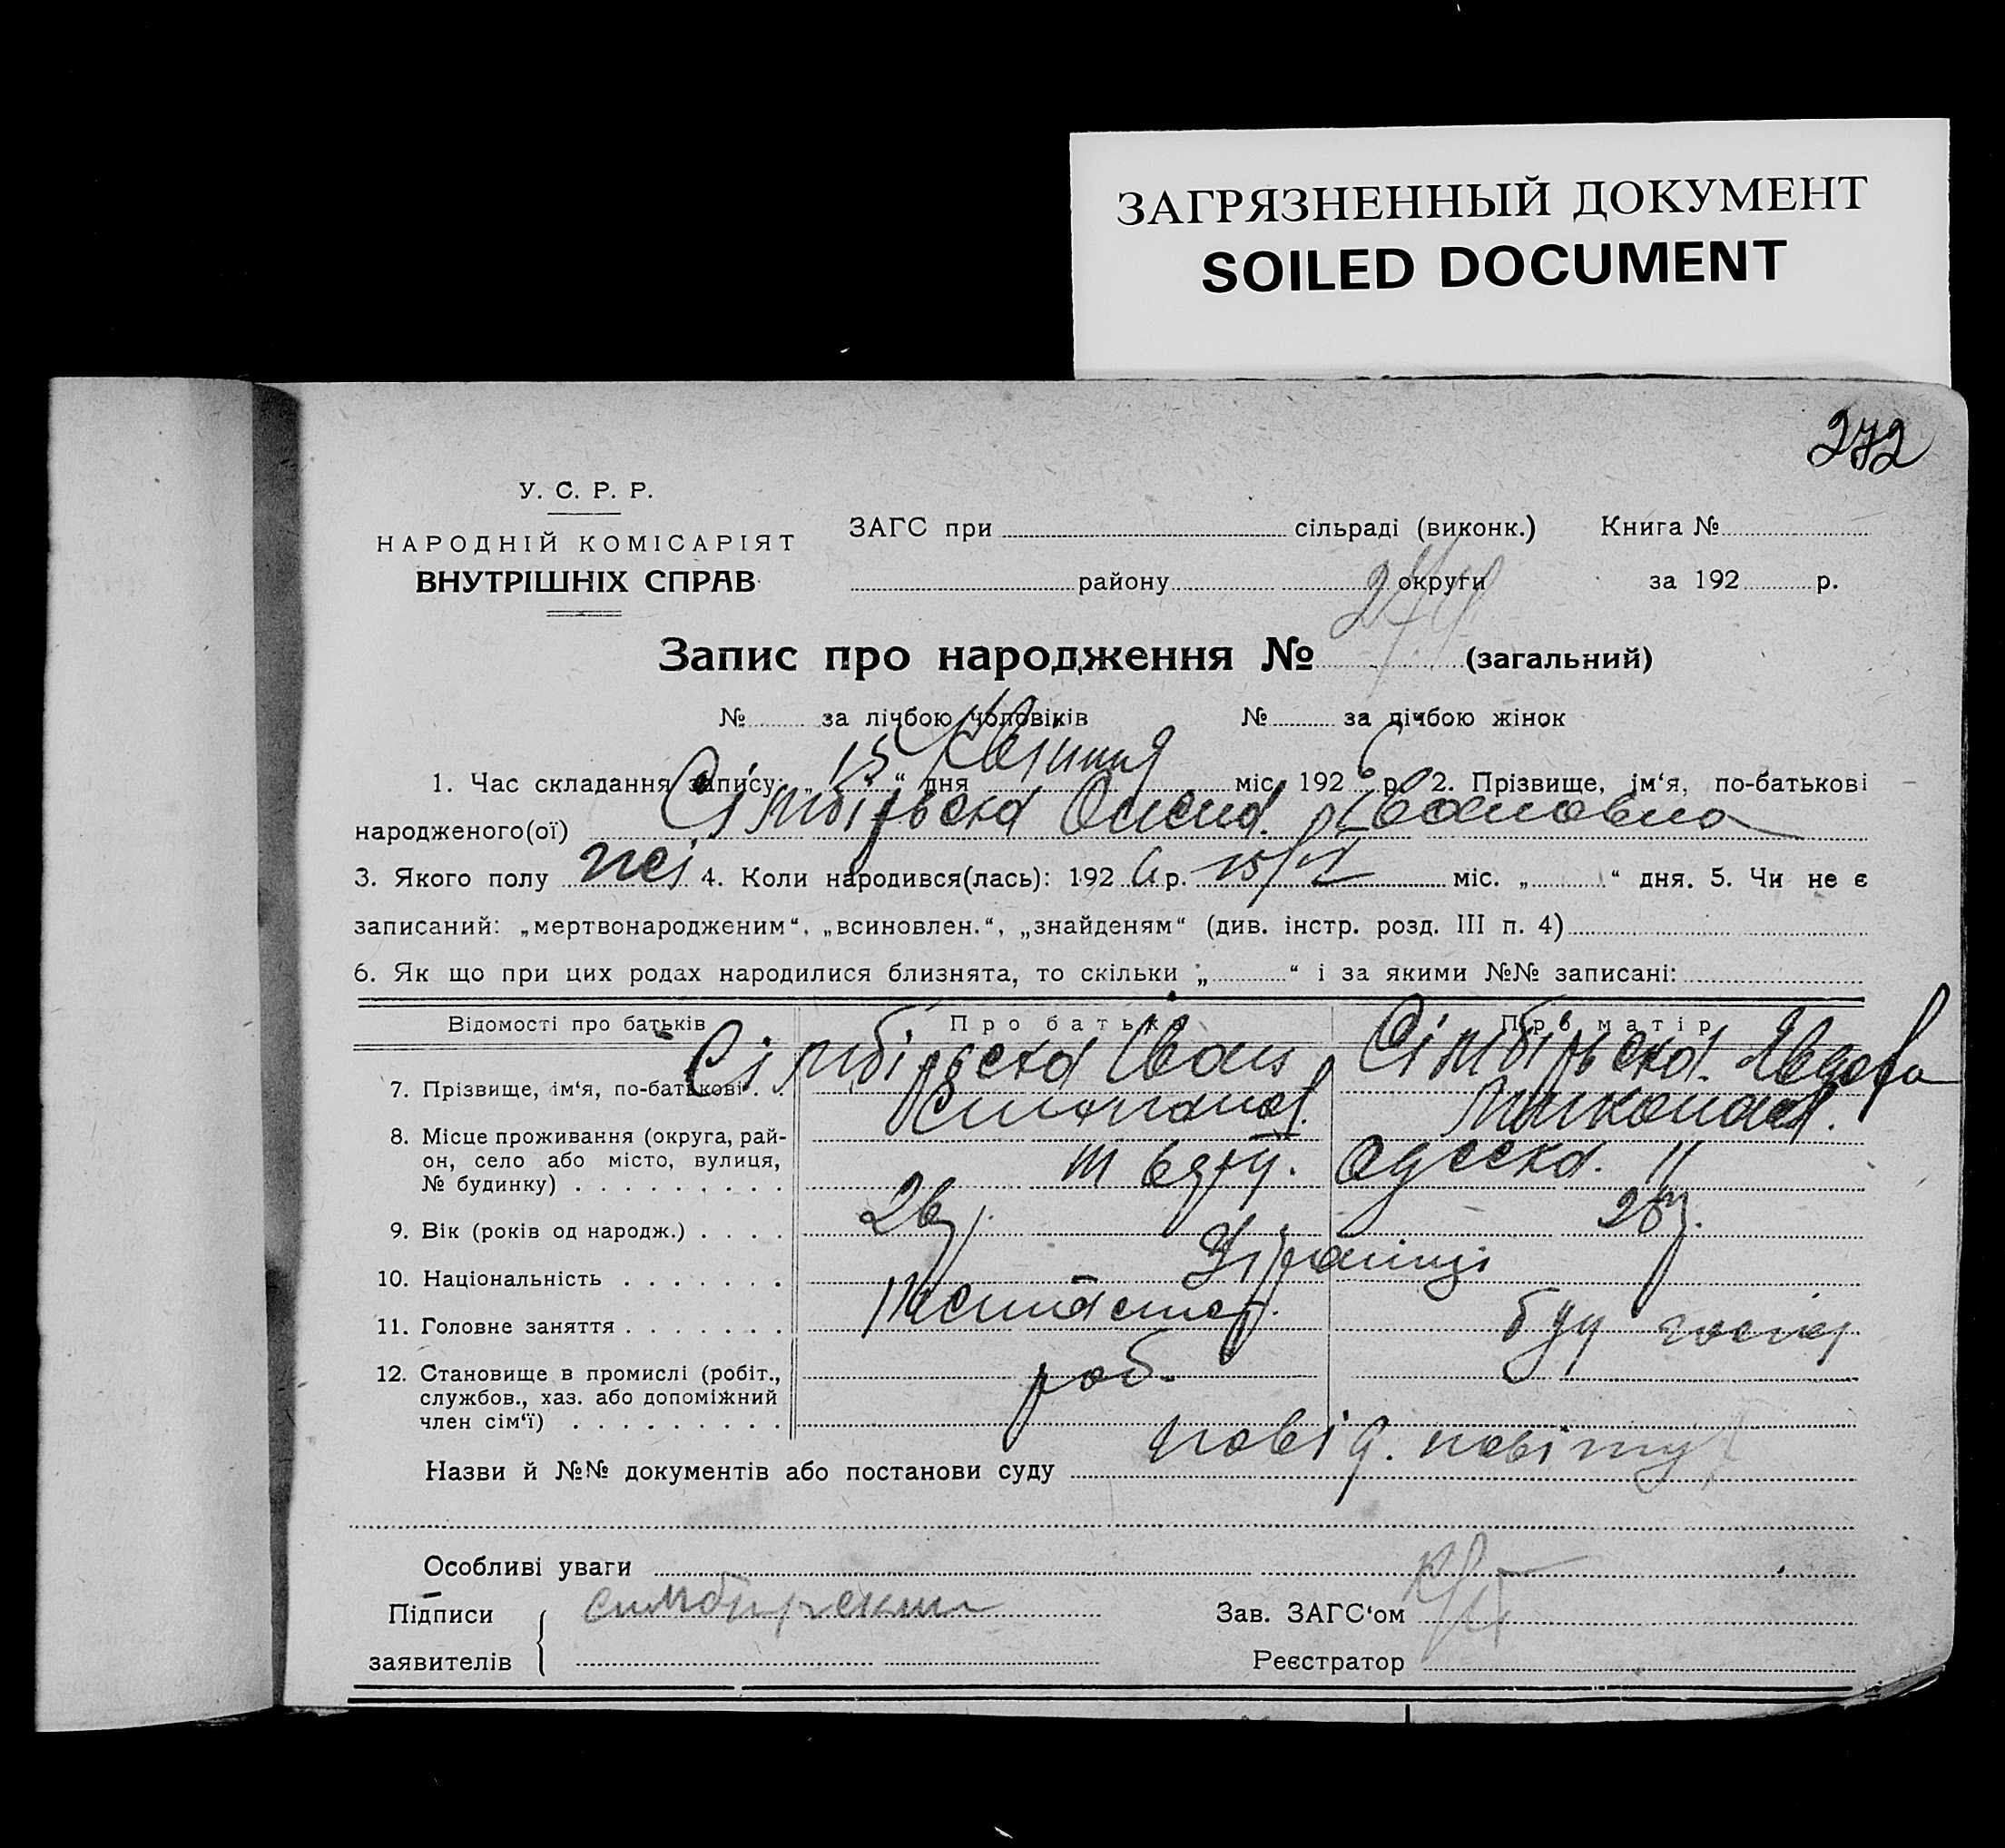 ЗАГРЯЗНЕННЫЙ ДОКУМЕНТ
SOILED DOCUMENT
272
У. С. Р. Р.
НАРОДНІЙ КОМІСАРІЯТ
ВНУТРІШНІХ СПРАВ
ЗАГС при сільраді (виконк.) Книга №
району округи за 192 р.
Запис про народження № (загальний)
№ за лічбою чоловіків № за лічбою жінок
1. Час складання запису: „15“ дня Квітня міс. 1926 р. 2. Прізвище, ім‘я, по-батькові
народженого(ої) Сімбірська Олена Івановна
3. Якого полу жі 4. Коли народився(лась): 1926 р. міс. „ “ дня. 5. Чи не є
записаний: „мертвонародженим“, „всиновлен.“, „знайденям“ (див. інстр. розд. III п. 4)
6. Як що при цих родах народилися близнята, то скільки „ “ і за якими №№ записані:
Відомості про батьків Про батька Про матір
7. Прізвище, ім‘я, по-батькові Сімбірська Іван Сімбірська
Миколаев.
8. Місце проживання (округа, рай-
он, село або місто, вулиця, Одеська 11
№ будинку)
9. Вік (років од народж.)
10. Національність Українці
11. Головне заняття
12. Становище в промислі (робіт., роб.
службов., хаз. або допоміжний
член сім‘ї)
Назви й №№ документів або постанови суду повід.
Особливі уваги
Підписи Симбирский Зав. ЗАГС‘ом
заявителів Реєстратор